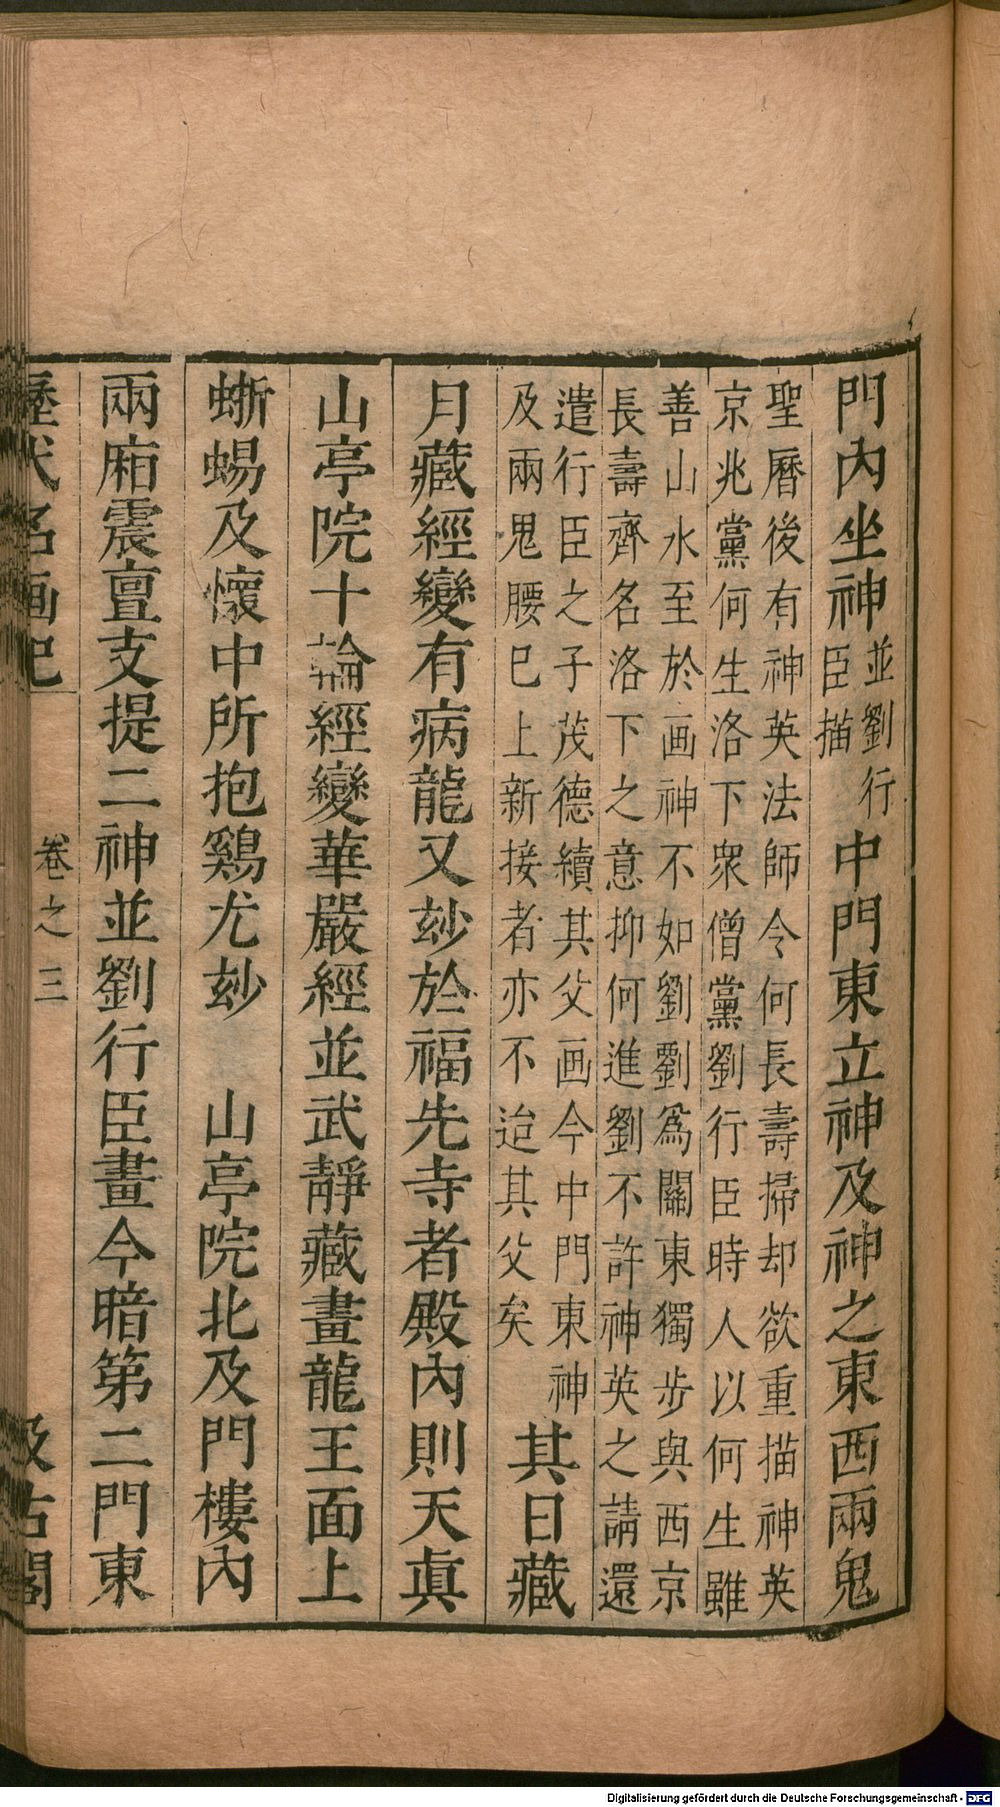 門內坐神並劉行臣描中門東立神及神之東西兩鬼
聖曆後有神英法師令何長壽掃却欲重描神英
京兆黨何生洛下眾僧黨劉行臣時人以何生雖
善山水至於画神不如劉劉為關東獨步與西京
長壽齊名洛下之意抑何進劉不許神英之請還
遣行臣之子茂德續其父画今中門東神
及兩鬼腰巳上新接者亦不迨其父矣
其日藏
月藏經變有病龍又玅於福先寺者殿內則天眞
山亭院十輪經變華嚴經並武靜藏畫龍王面上
蜥蜴及懷中所抱鷄尤玅　山亭院北及門樓內
兩廂震亶支提二神並劉行臣畫今暗第二門東
歷代名画記　卷之三　汲古閣
Digitalisierung gefördert durch die Deutsche Forschungsgemeinschaft - DFG